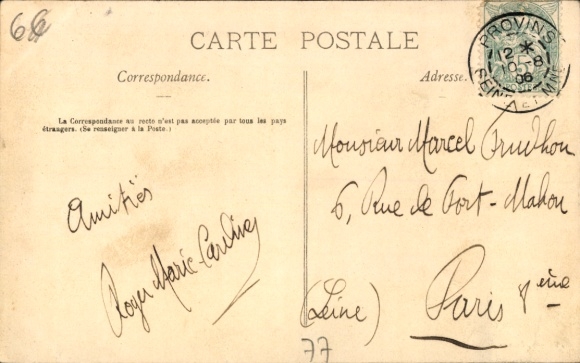 6
CARTE POSTALE
PROVINS
2 *
10-8
06
SEINE ET MNE
Correspondance.
Adresse.
La Correspondance au recto n'est pas acceptée par tous les pays
étrangers. (Se renseigner à la Poste.)
Monsieur Marcel Prudhon
6, Rue de Port-Mahon
Paris
(Seine)
77
Amitiés
Roger Marie